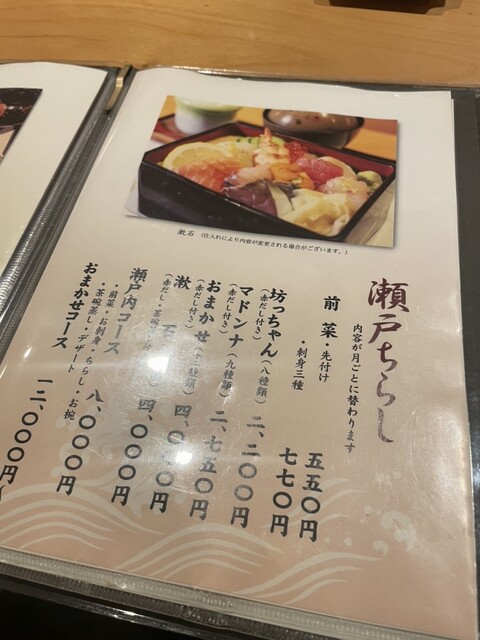 漱石 （仕入れにより内容が変更される場合がございます。）
瀬戸ちらし
内容が月ごとに替わります
前菜・先付け 五五〇円
・刺身三種 七七〇円
坊っちゃん（八種類）
（赤だし付き） 二、二〇〇円
マドンナ（九種類）
（赤だし付き） 二、七五〇円
おまかせ（十種類）
（赤だし付き） 四、
漱石
（赤だし・茶碗 四、
瀬戸内コース
・前菜・お刺身・ちらし・お椀
・茶碗蒸し・デザート 八、〇〇〇円
おまかせコース 一二、〇〇〇円